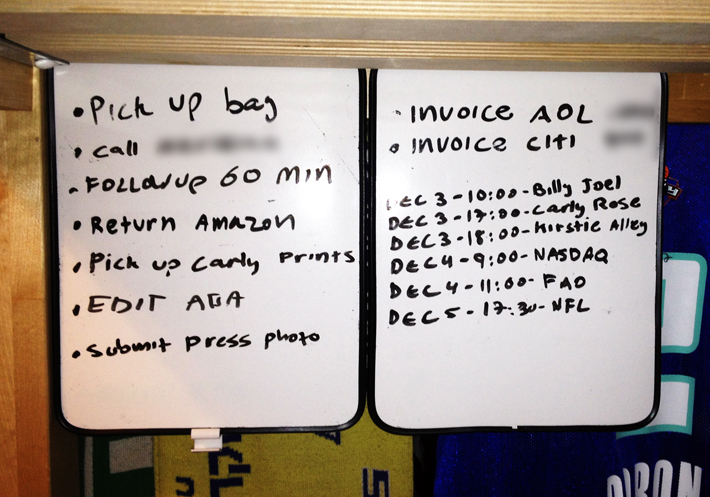 • Pick up bag
• call
• Followup 60 min
• Return Amazon
• Pick up Carly Prints
• EDIT ABA
• Submit press photo
• Invoice AOL
• Invoice citi
DEC 3 - 10:00 - Billy Joel
DEC 3 - 17:00 - Carly Rose
DEC 3 - 18:00 - Kirstie Alley
DEC 4 - 9:00 - NASDAQ
DEC 4 - 11:00 - FAO
DEC 5 - 17:30 - NFL